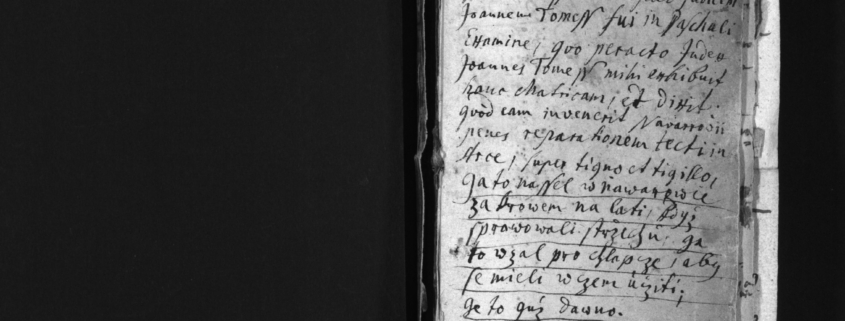 Joannem Tomeſſ fui in Paſchali
Examine, quo peracto Judex
Joannes Tomeſſ mihi exhibuit
hanc Matricam, et dixit.
quòd eam invenerit Navarrovii
penes reparationem tecti in
Arce, ſuper tigno et tigillo,
Ga to naſſel w nawarowce
za krowem na lati, kdyz
ſprawowali ſtrzechu. ga
to wzal pro chlapcze, aby
ſe mieli w czem uciti,
Ge to guz dawno.